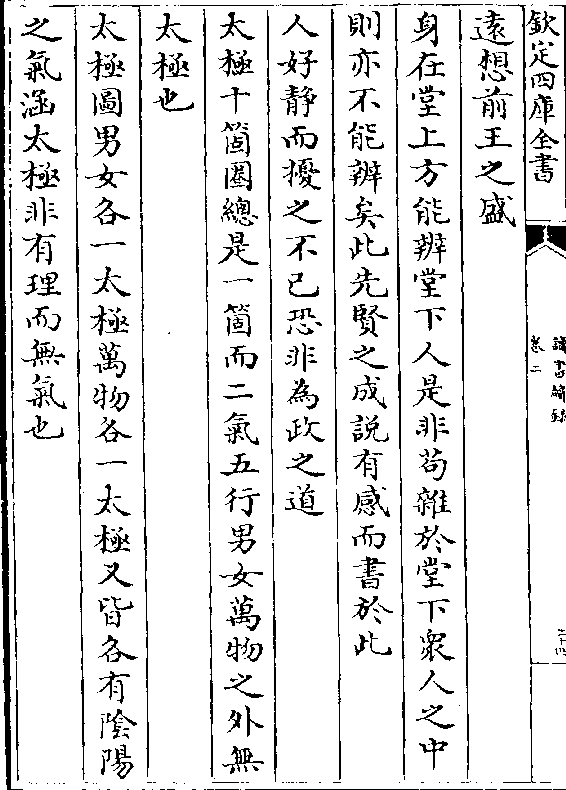 欽定四庫全書
讀書續錄
卷二
二十四
遠想前王之盛
身在堂上方能辨堂下人是非苟雜於堂下衆人之中
則亦不能辨矣此先賢之成説有感而書於此
人好靜而擾之不已恐非為政之道
太極十箇圈總是一箇而二氣五行男女萬物之外無
太極也
太極圖男女各一太極萬物各一太極又皆各有陰陽
之氣涵太極非有理而無氣也